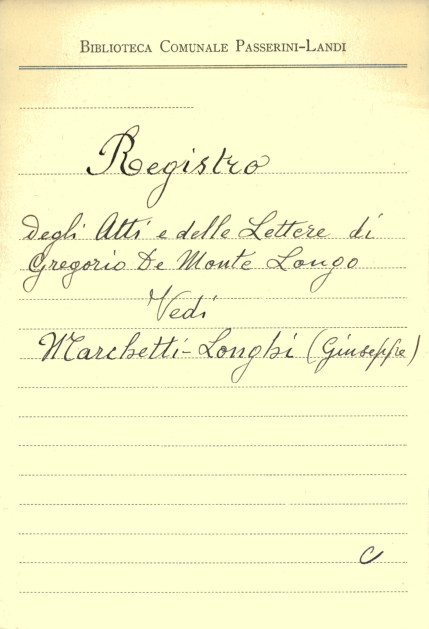 BIBLIOTECA COMUNALE PASSERINI-LANDI
Registro
Degli Atti e delle Lettere di
Gregorio De Monte Longo
Vedi
Marchetti-Longhi (Giuseppe)
C